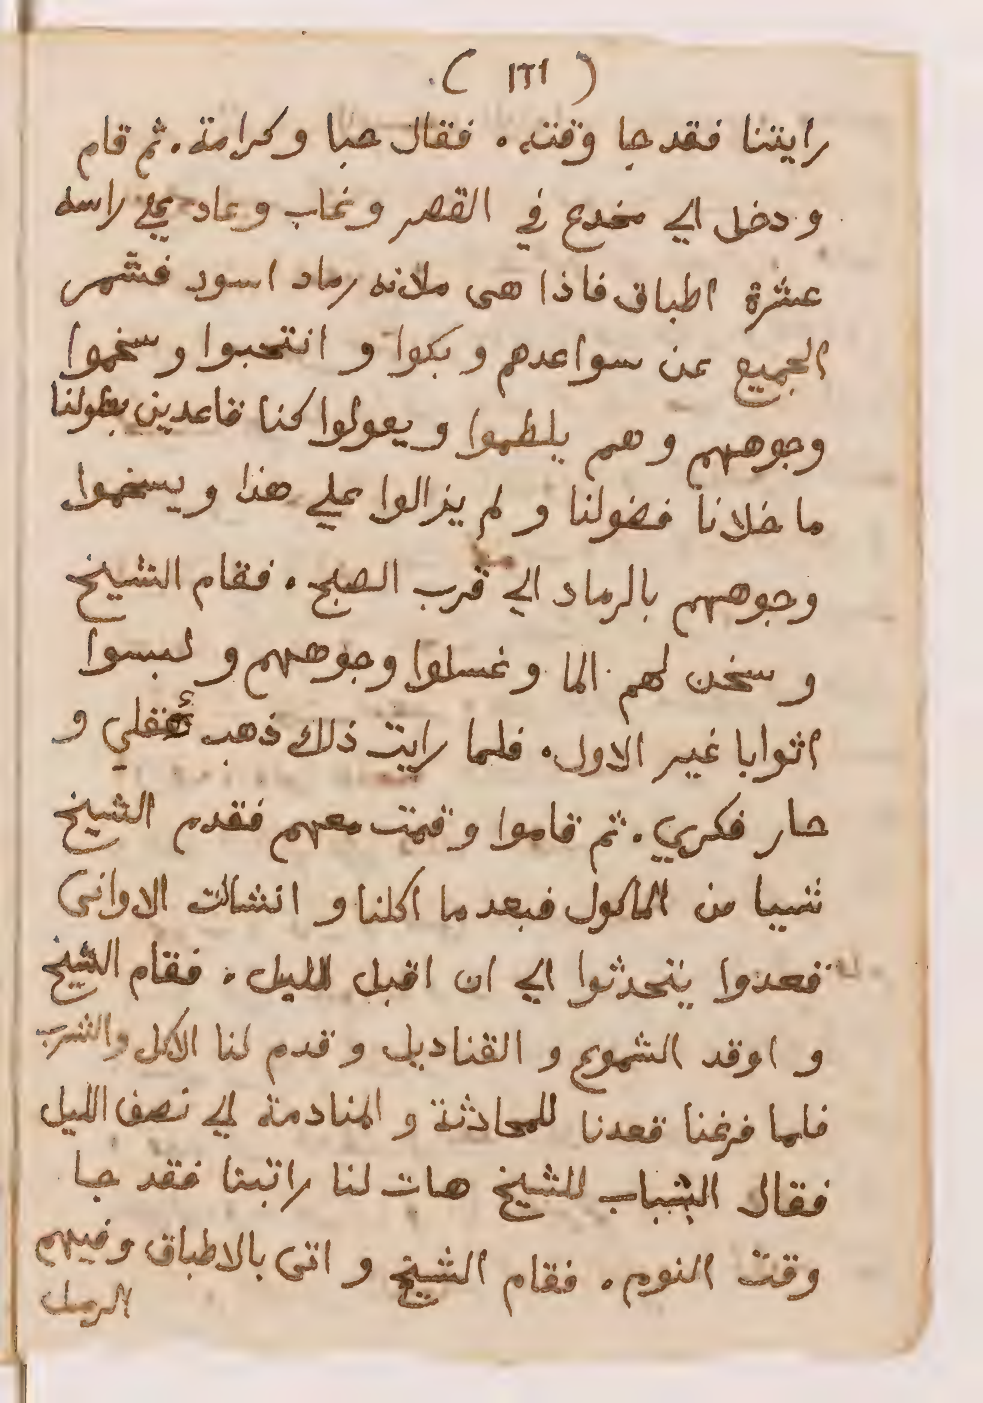 ( ١٢١ )
راتبنا فقد جا وقته . فقال حبا وكرامة . ثم قام
ودخل الي مخدع في القصر وغاب وعاد علي راسه
عشرة اطباق فاذا هى ملانه رماد اسود فشمر
الجميع عن سواعدهم وبكوا و انتحبوا وسخموا
وجوههم وهم يلطموا ويقولوا كنا قاعدين بطولنا
ما خلانا فضولنا و لم يزالوا علي هذا ويسخموا
وجوههم بالرماد الي قرب الصبح . فقام الشيخ
و سخن لهم الما وغسلوا وجوههم و لبسوا
اثوابا غير الاول . فلما رايت ذلك ذهب عقلي و
حار فكري . ثم قاموا وقمت معهم فقدم الشيخ
شيا من الماكول فبعد ما اكلنا و انشالت الاوانى
قعدوا يتحدثوا الي ان اقبل الليل . فقام الشيخ
و اوقد الشموع و القناديل وقدم لنا الاكل والشرب
فلما فرغنا قعدنا للمحادثة و المنادمة الي نصف الليل
فقال الشباب للشيخ هات لنا راتبنا فقد جا
وقت النوم . فقام الشيخ و اتى بالاطباق وفيهم
الرمل